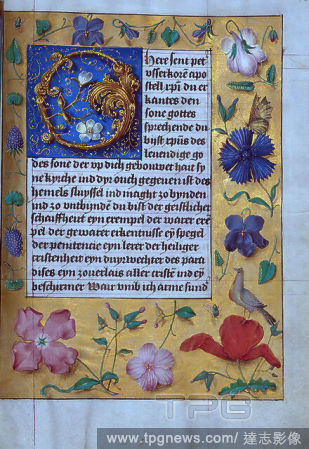 Here sent pet
usserkorē apo
stell xpī du er
kantes den
sone gottes
sprechende du
byst xpūs des
leuendige go
des sone der vp dich gebouwet hait sy
ne kyrche ind dyr ouch gegeuen ist des
hemels slussel ind maght zo bynden
ind zo untbyndē du bist der geistlicher
schaiffheit eyn exempel der warer exē
pel der gewarer erkentenisse eȳ spegel
der penitencie eyn lerer der heiliger
cristenheit eyn durwechter des para
dises eyn zouerlais aller cristē ind eȳ
beschirmer Wair vmb ich arme sund
TPG
www.tpgnews.com/ 達志影像